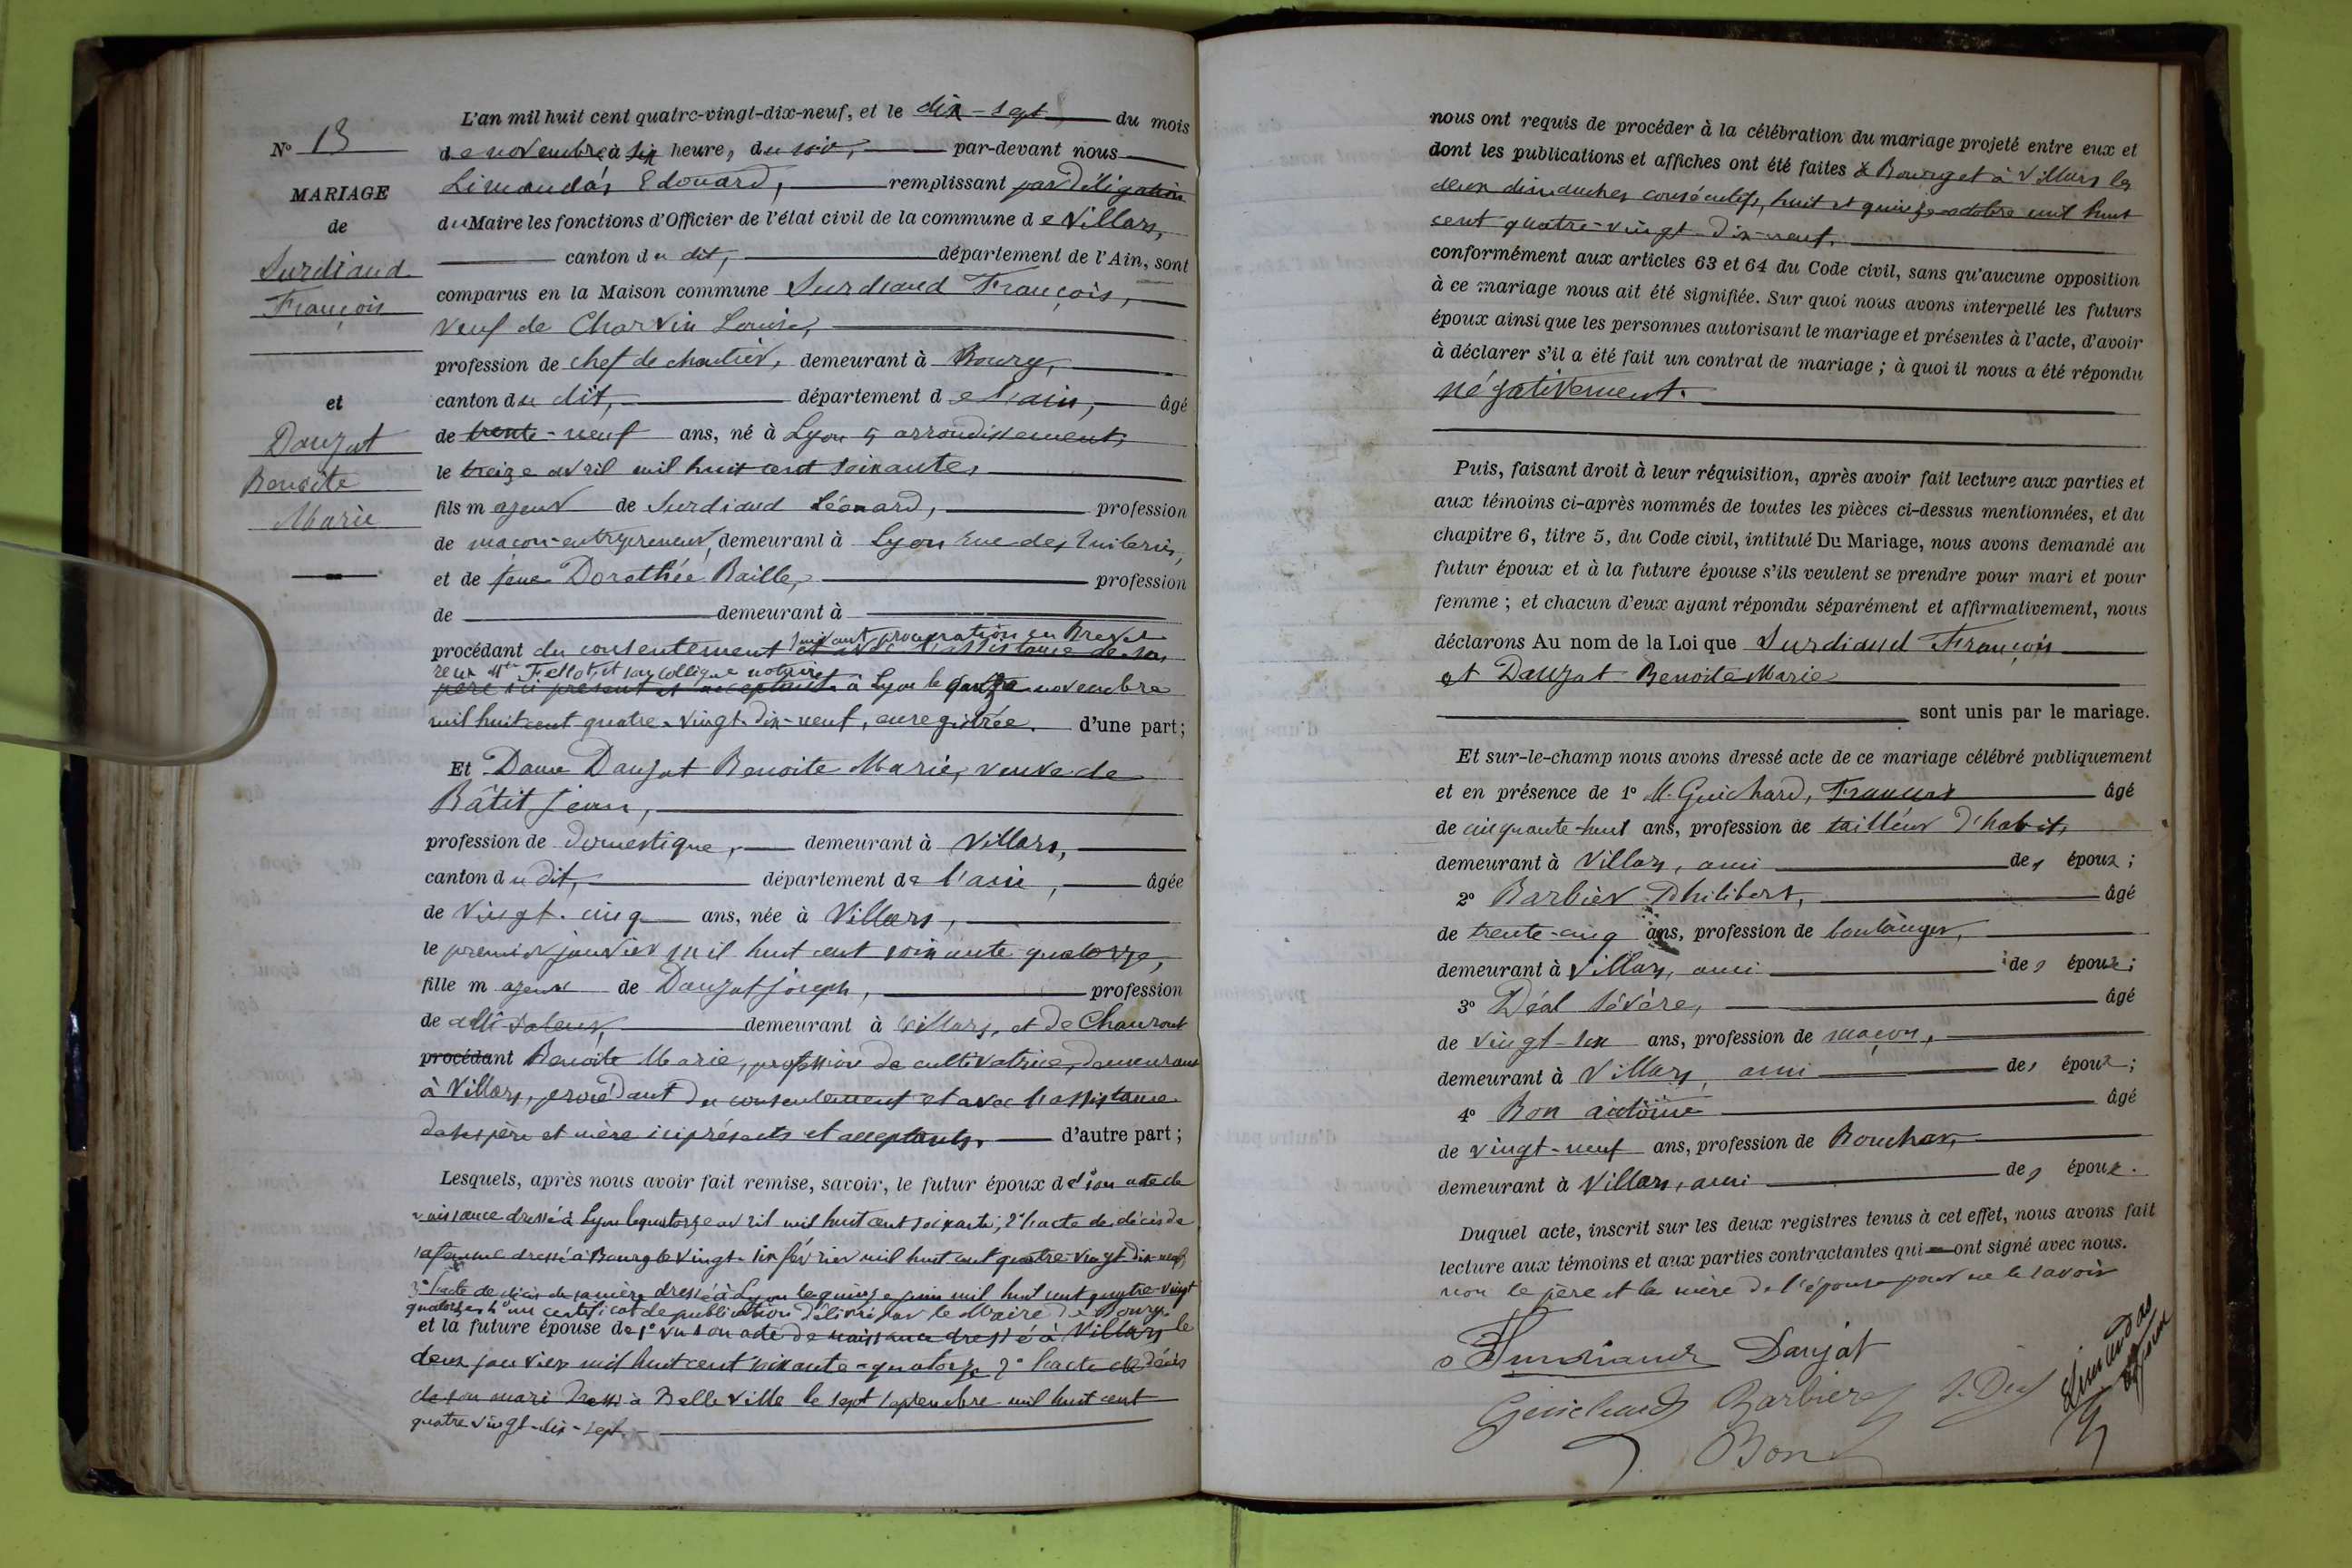 N° 13
MARIAGE
de
Surdiaud
François
et
Dauzat
Benoite
Marie
L'an mil huit cent quatre-vingt-dix-neuf, et le dix-sept du mois
de novembre, à six heure, du soir, par-devant nous
Limandas Edouard, remplissant par délégation
du Maire les fonctions d'Officier de l'état civil de la commune de Villars,
canton du dit, département de l'Ain, sont
comparus en la Maison commune Surdiaud François,
veuf de Charvin Louise,
profession de chef de chantier, demeurant à Bourg,
canton du dit, département de l'ain, âgé
de trente-neuf ans, né à Lyon 5 arrondissement,
le treize avril mil huit cent soixante,
fils majeur de Surdiaud Léonard, profession
de maçon-entrepreneur, demeurant à Lyon rue des
et de feue Dorothée Baille, profession
de demeurant à
suivant procuration en Brevet
procédant du consentement et avec l'assistance de son
reçu Mtre et son collègue notaires
père ici présent et acceptant à Lyon le quinze novembre
mil huit cent quatre-vingt-dix-neuf, enregistrée. d'une part;
Et Dame Dauzat Benoite Marie, veuve de
Bâtit Jean,
profession de domestique, demeurant à Villars,
canton du dit, département de l'ain, âgée
de vingt-cinq ans, née à Villars,
le premier janvier mil huit cent soixante quatorze,
fille majeure de Dauzat Joseph, profession
de demeurant à Villars, et de
procédant Benoite Marie, profession de cultivatrice, demeurant
à Villars, procédant du consentement et avec l'assistance
de ses père et mère ici présents et acceptants, d'autre part;
Lesquels, après nous avoir fait remise, savoir, le futur époux de 1° son acte de
naissance dressé à Lyon le quatorze avril mil huit cent soixante; 2° l'acte de décès de
sa femme dressé à Bourg le vingt-six février mil huit cent quatre-vingt-dix-neuf,
3° l'acte de décès de sa mère dressé à Lyon le quinze juin mil huit cent quatre-vingt
quatorze 4° un certificat de publication délivré par le Maire de Bourg
et la future épouse de 1° vu son acte de naissance dressé à Villars le
deux janvier mil huit cent soixante-quatorze 2° l'acte de décès
de son mari dressé à Belleville le sept septembre mil huit cent
quatre vingt-dix-sept
nous ont requis de procéder à la célébration du mariage projeté entre eux et
dont les publications et affiches ont été faites à Bourg et à Villars les
deux dimanches consécutifs, huit et quinze octobre mil huit
cent quatre-vingt-dix-neuf,
conformément aux articles 63 et 64 du Code civil, sans qu'aucune opposition
à ce mariage nous ait été signifiée. Sur quoi nous avons interpellé les futurs
époux ainsi que les personnes autorisant le mariage et présentes à l'acte, d'avoir
à déclarer s'il a été fait un contrat de mariage; à quoi il nous a été répondu
négativement.
Puis, faisant droit à leur réquisition, après avoir fait lecture aux parties et
aux témoins ci-après nommés de toutes les pièces ci-dessus mentionnées, et du
chapitre 6, titre 5, du Code civil, intitulé Du Mariage, nous avons demandé au
futur époux et à la future épouse s'ils veulent se prendre pour mari et pour
femme; et chacun d'eux ayant répondu séparément et affirmativement, nous
déclarons Au nom de la Loi que Surdiaud François
et Dauzat Benoite Marie
sont unis par le mariage.
Et sur-le-champ nous avons dressé acte de ce mariage célébré publiquement
et en présence de 1° M. Guichard, François âgé
de cinquante-huit ans, profession de tailleur d'habits,
demeurant à Villars, ami des époux;
2° Barbier Philibert, âgé
de trente-cinq ans, profession de boulanger,
demeurant à Villars, ami des époux;
3° Déal Sévère, âgé
de vingt-six ans, profession de maçon,
demeurant à Villars, ami des époux;
4° Bon antoine âgé
de vingt-neuf ans, profession de Boucher,
demeurant à Villars, ami des époux.
Duquel acte, inscrit sur les deux registres tenus à cet effet, nous avons fait
lecture aux témoins et aux parties contractantes qui ont signé avec nous.
non le père et la mère de l'épouse pour ne le savoir
Dauzat
Guichard Barbier
Bon